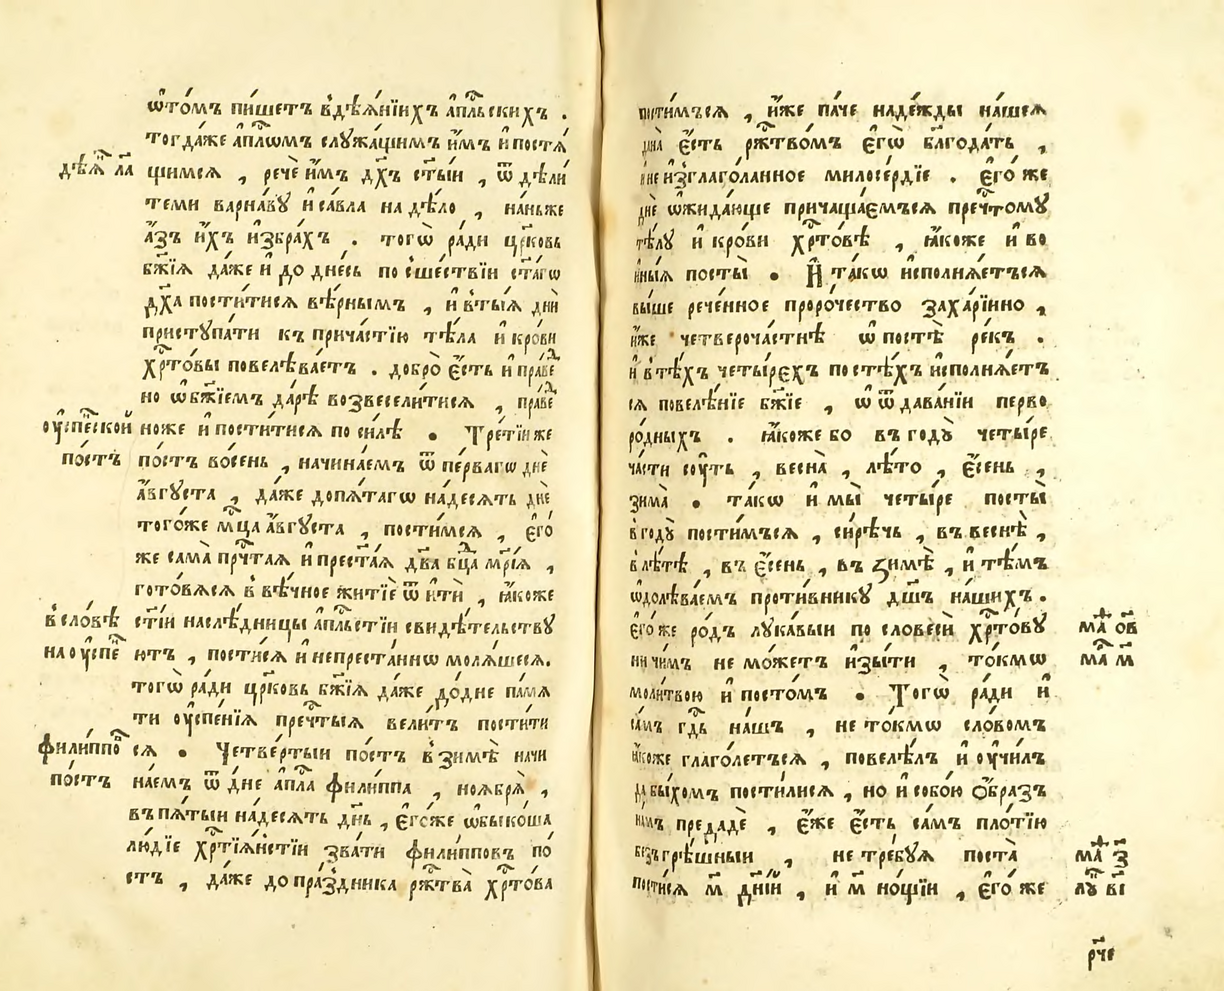 ѡ҆то́мъ пи́шетъ вдѣѧ́нїихъ а҆пльскихъ .
тогда́же а҆пⷭ҇лѡмъ слꙋжа́щимъ и҆́мъ и҆ постѧ́
дѣѧⷩ҇ л҃а
щимсѧ , речѐ и҆́мъ дх҃ъ ст҃ы́и , ѿдѣли́
теми варна́вꙋ и҆ са́вла на дѣ́ло , на́ньже
а҆́зъ и҆́хъ и҆збра́хъ . тогѡ̀ ра́ди цр҃ковь
бж҃їѧ да́же и҆ до дне́сь по сше́ствїи ст҃а́гѡ
дх҃а пости́тисѧ вѣ́рнымъ , и҆ втыѧ́ дни̑
пристꙋпа́ти къ прича́стїю тѣ́ла и҆ кро́ви
хрⷭ҇то́вы повелѣва́етъ . добро̀ є҆́сть и҆ пра́веⷣ
но ѡ҆ бж҃їемъ да́рѣ возвесели́тисѧ , пра́веⷣ
оу҆спе́нскои
ноже и҆ пости́тисѧ по си́лѣ . Тре́тїиже
по́стъ
по́стъ во́сень , начина́емъ ѿ пе́рвагѡ днѐ
а҆́вгꙋста , да́же допѧ́тагѡ на́десѧть днѐ
того́же мцⷭ҇а а҆́вгꙋста , пости́мсѧ , є҆го́
же сама̀ прчⷭ҇таѧ и҆ прест҃а́ѧ дв҃а бцⷣа мр҃і́ѧ ,
гото́вѧсѧ в вѣ́чное житїѐ ѿити̑ , ꙗ҆́коже
в сло́вѣ
ст҃і́и наслѣ́дницы а҆пⷭ҇льстїи свидѣ́тельствꙋ
на оу҆спеⷩ҇
ютъ , постѧ́сѧ и҆ непреста́ннѡ молѧ́шесѧ.
тогѡ̀ ра́ди цр҃ковь бж҃їѧ да́же до́дне па́мѧ
ти оу҆спе́нїѧ пречⷭ҇тыѧ вели́тъ пости́ти
фили́ппоⷡ
сѧ . Четве́ртыи по́стъ в зимѣ̀ начи
по́стъ
на́емъ ѿ днѐ а҆пⷭ҇ла фили́ппа , ноѧ́брѧ̀ ,
въ пѧ́тыи на́десѧть дн҃ь , є҆го́же ѡ҆быко́ша
лю́дїе хрⷭ҇тїѧ́нстїи зва́ти фили́пповъ по́
стъ , да́же до пра́здника ржⷭ҇тва̀ хрⷭ҇то́ва
пости́мъсѧ , и҆́же па́че наде́жды на́шеѧ
дана̀ є҆́сть ржⷭ҇тво́мъ є҆гѡ̀ бл҃года́ть ,
и҆ неи҆зглаго́ланное милосе́рдїе . є҆го́же
днѐ ѡ҆жида́юще причаща́емъсѧ пречⷭ҇томꙋ
тѣ́лꙋ и҆ кро́ви хрⷭ҇то́вѣ , ꙗ҆́коже и҆ во
и҆́ныѧ посты̀ . И҆ та́кѡ и҆сполнѧ́етъсѧ
вы́ше рече́нное проро́чество заха́рїино ,
и҆́же четвероча́стнѣ ѡ҆ постѣ̀ ре́къ .
и҆ в тѣ́хъ четы́рехъ посте́хъ и҆сполнѧ́етъ
сѧ повелѣ́нїе бж҃їе , ѡ҆ ѿдава́нїи перво
ро́дныхъ . ꙗ҆́коже бо въ годꙋ̀ четы́ре
ча́сти сꙋ́ть , весна̀ , лѣ́то , є҆́сень ,
зима̀ . та́кѡ и҆ мы̀ четы́ре посты̀
в годꙋ̀ пости́мъсѧ , си́рѣчь , въ веснѣ̀ ,
в лѣ́тѣ , въ є҆́сень , въ зимѣ̀ , и҆ тѣ́мъ
ѡ҆долѣва́емъ проти́вникꙋ дш҃ъ на́шихъ .
є҆го́же ро́дъ лꙋка́выи по словесѝ хрⷭ҇то́вꙋ
ма ѻв
ничи́мъ не мо́жетъ и҆зы́ти , то́кмѡ
маⷬ м҃
моли́твою и҆ посто́мъ . Тогѡ̀ ра́ди и҆
са́мъ гдⷭ҇ь на́шъ , не то́кмѡ сло́вомъ
ꙗ҆́коже глаго́летъсѧ , повелѣ́лъ и҆ оу҆чи́лъ
да бы́хомъ пости́лисѧ , но и҆ собо́ю ѻ҆́бразъ
на́мъ предадѐ , є҆́же є҆́сть са́мъ пло́тїю
безгрѣ́шныи , не тре́бꙋѧ поста̀
ма з҃
пости́сѧ м҃ дні́и , и҆ м҃ но́щїи , є҆го́же
лꙋ вı
рч҃е